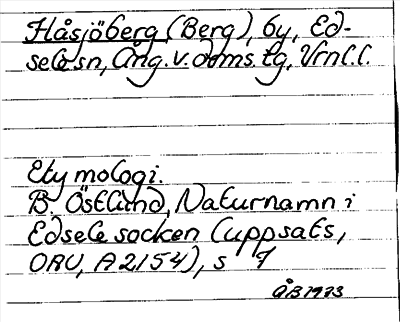 Håsjöberg (Berg), by, Ed-
sele sn, Ång. v. doms. tg, Vrnl. l.
Etymologi.
B. Östlund, Naturnamn i
Edsele socken (uppsats,
OAU, A 2154), s 7
ÅB 1973